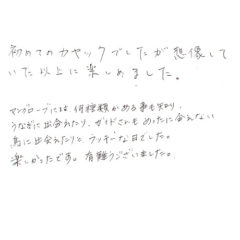 初めてのカヤックでしたが想像して
いた以上に楽しめました。
マングローブには何種類かある事も知り、
うなぎに出会えたり、ガイドさんもめったに会えない
鳥に出会えたりと、ラッキーな日でした。
楽しかったです。有難うございました。